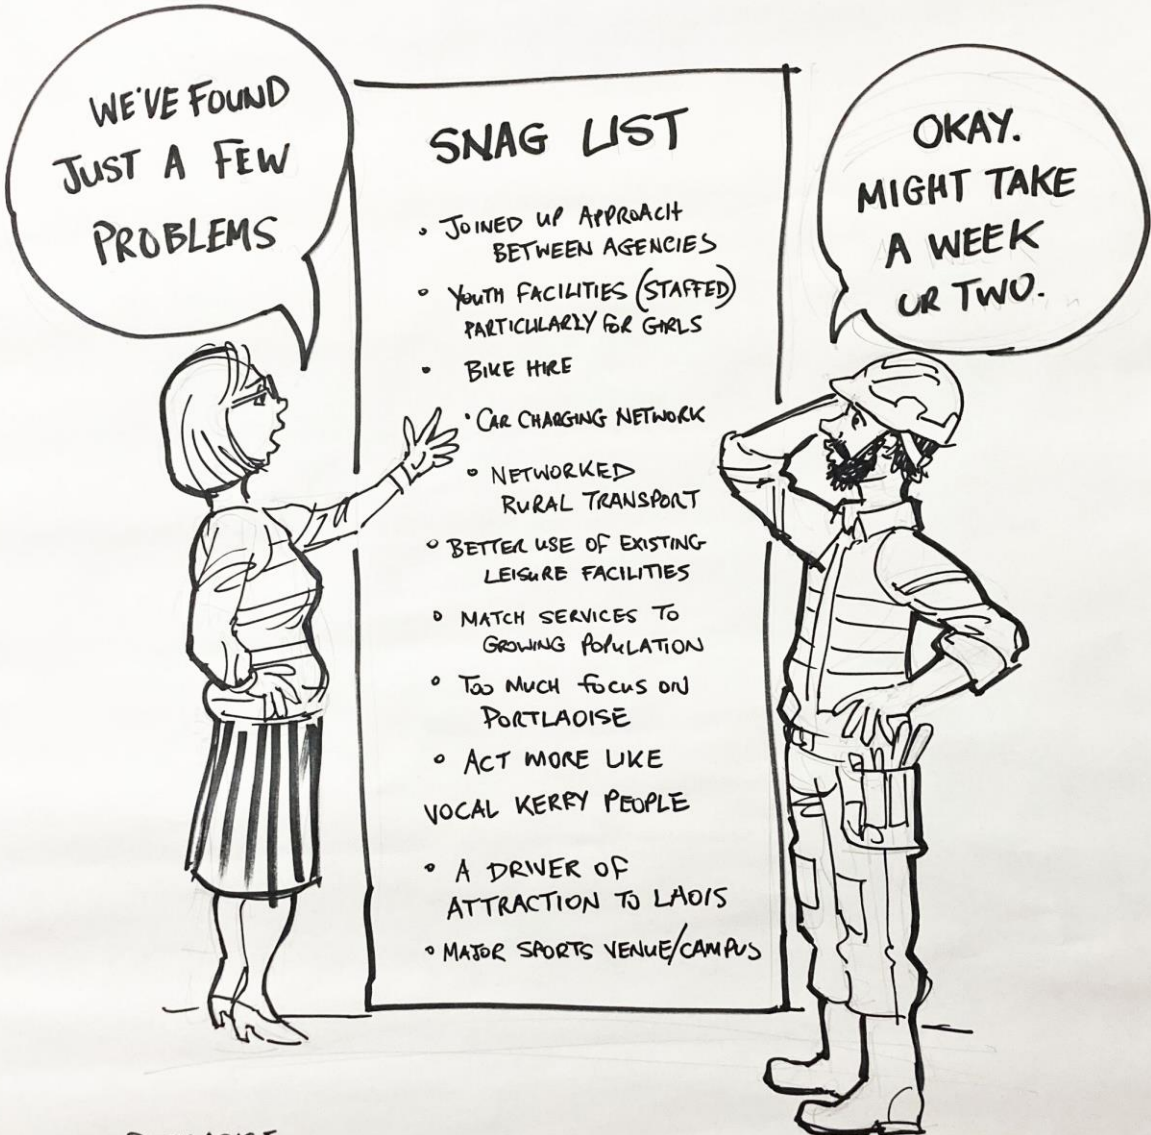 WE'VE FOUND
JUST A FEW
PROBLEMS
SNAG LIST
• JOINED UP APPROACH
BETWEEN AGENCIES
• YOUTH FACILITIES (STAFFED)
PARTICULARLY FOR GIRLS
• BIKE HIRE
• CAR CHARGING NETWORK
• NETWORKED
RURAL TRANSPORT
• BETTER USE OF EXISTING
LEISURE FACILITIES
• MATCH SERVICES TO
GROWING POPULATION
• TOO MUCH FOCUS ON
PORTLAOISE
• ACT MORE LIKE
VOCAL KERRY PEOPLE
• A DRIVER OF
ATTRACTION TO LAOIS
• MAJOR SPORTS VENUE/CAMPUS
OKAY.
MIGHT TAKE
A WEEK
OR TWO.